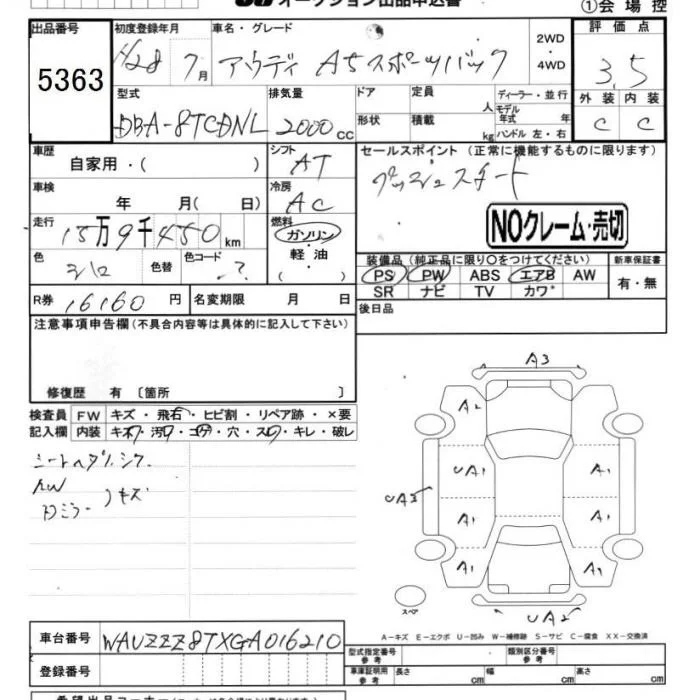 オークション出品申込書
①会場控
出品番号
5363
初度登録年月
H28 7月
車名・グレード
アウディ A5スポーツバック
2WD
・
4WD
評価点
3.5
外装 内装
C C
型式
DBA-8TCDNL
排気量
2000cc
ドア
形状
定員 人
積載 kg
ディーラー・並行
モデル年式 年
ハンドル 左・右
車歴
自家用・( )
シフト
AT
セールスポイント (正常に機能するものに限ります)
プッシュスタート
車検
年 月( 日)
冷房
AC
NOクレーム・売切
走行
15万9千450km
燃料
ガソリン
・
軽油
・( )
色
シロ
色替
色コード
?
装備品(純正品に限り○をつけてください)
PS PW ABS エアB AW
SR ナビ TV カワ
新車保証書
有・無
R券
16160円
名変期限 月 日
後日品
注意事項申告欄(不具合内容等は具体的に記入して下さい)
修復歴 有〔箇所 〕
検査員
記入欄
FW キズ・飛石・ヒビ割・リペア跡・×要
内装 キズ・汚レ・コゲ・穴・スレ・キレ・破レ
シートヘタリ、シワ
キズ
A3
A2
UA1 A1
UA3
A1 A1
A1 A1
UA2
スペア
A-キズ E-エクボ U-凹み W-補修跡 S-サビ C-腐食 XX-交換済
車台番号
WAUZZZ8TXGA016210
型式指定番号
参考
類別区分番号
参考
登録番号
車庫証明用
参考
長さ cm
幅 cm
高さ cm